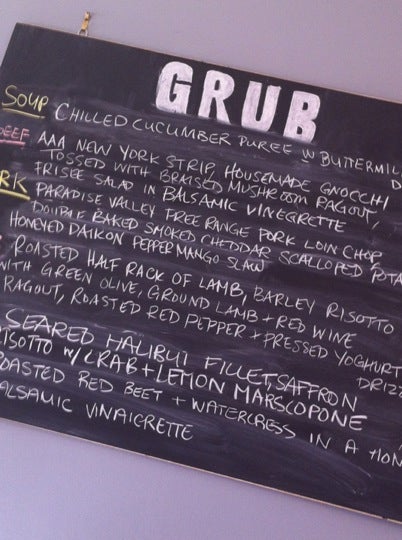 GRUB
SOUP CHILLED CUCUMBER PUREE W BUTTERMIL
D
BEEF AAA NEW YORK STRIP, HOUSEMADE GNOCCHI
TOSSED WITH BRAISED MUSHROOM RAGOUT,
FRISEE SALAD IN BALSAMIC VINEGRETTE
RK PARADISE VALLEY FREE RANGE PORK LOIN CHOP,
DOUBLE BAKED SMOKED CHEDDAR SCALLOPED POTA
HONEYED DAIKON PEPPER MANGO SLAW
ROASTED HALF RACK OF LAMB, BARLEY RISOTTO
WITH GREEN OLIVE, GROUND LAMB + RED WINE
RAGOUT, ROASTED RED PEPPER + PRESSED YOGHURT
DRIZZ
SEARED HALIBUT FILLET, SAFFRON
RISOTTO W/ CRAB + LEMON MARSCOPONE
ROASTED RED BEET + WATERCRESS IN A HON
ALSAMIC VINAIGRETTE